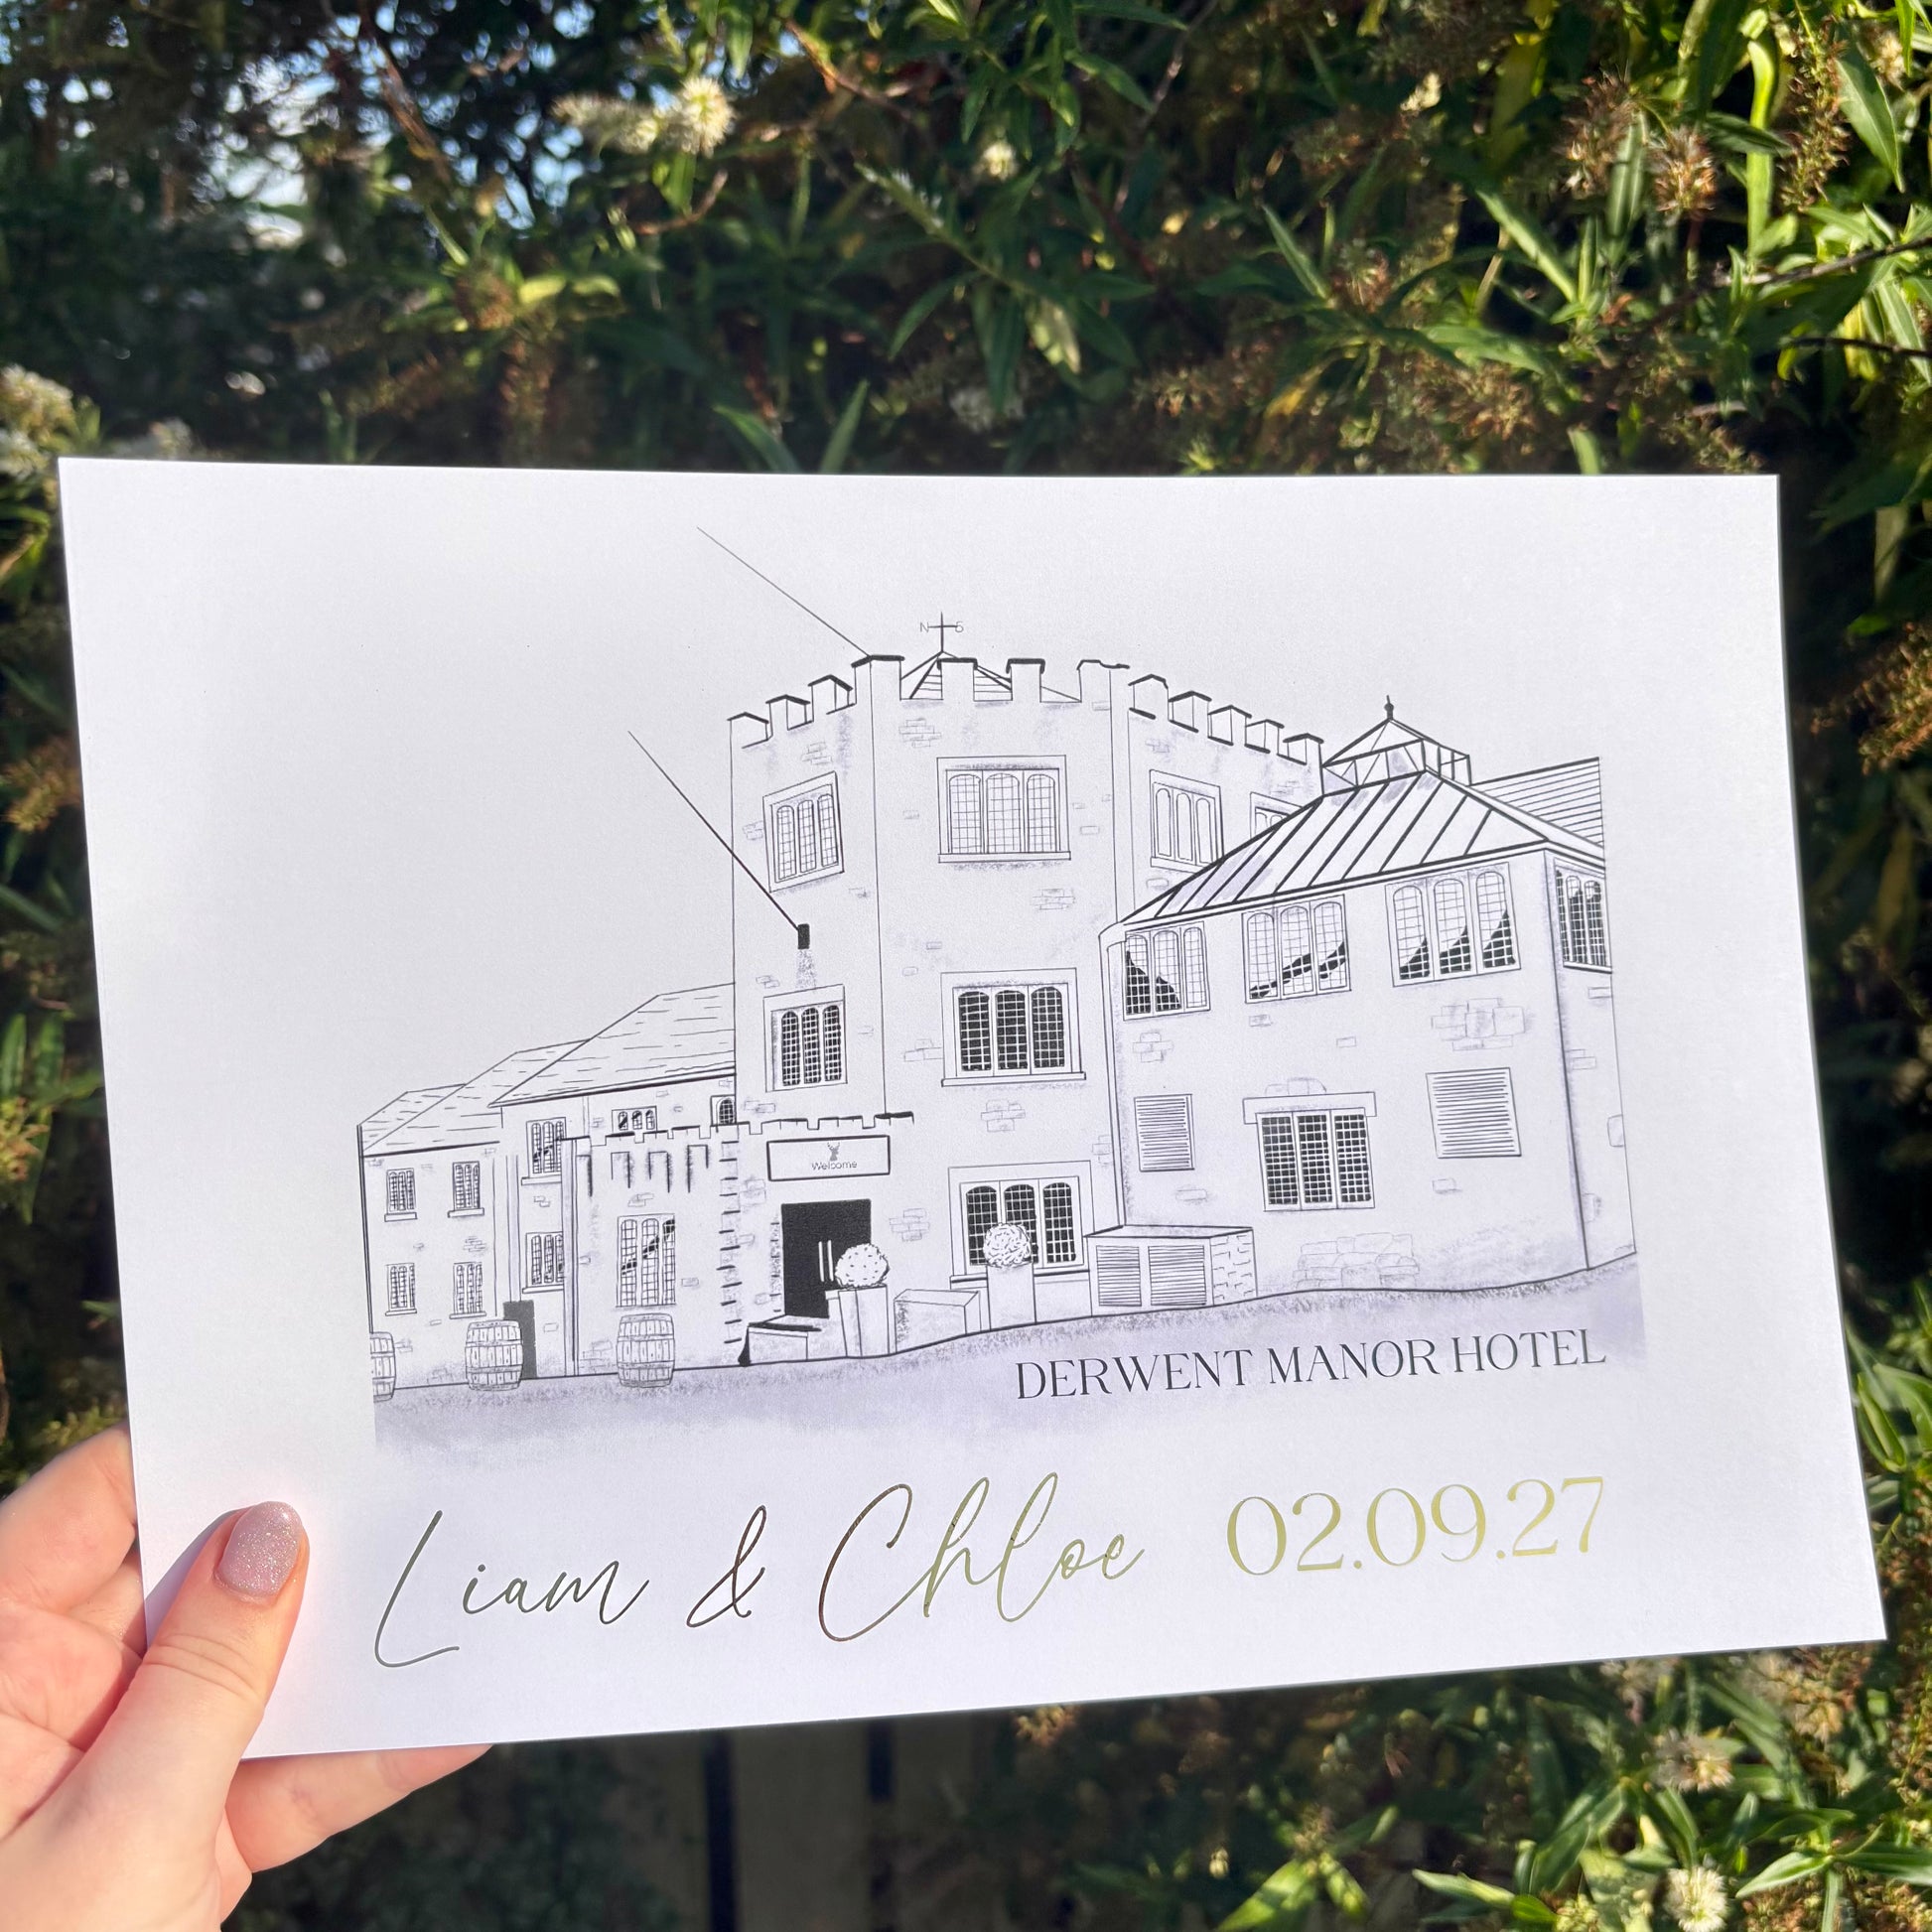 N S
Welcome
DERWENT MANOR HOTEL
Liam & Chloe 02.09.27